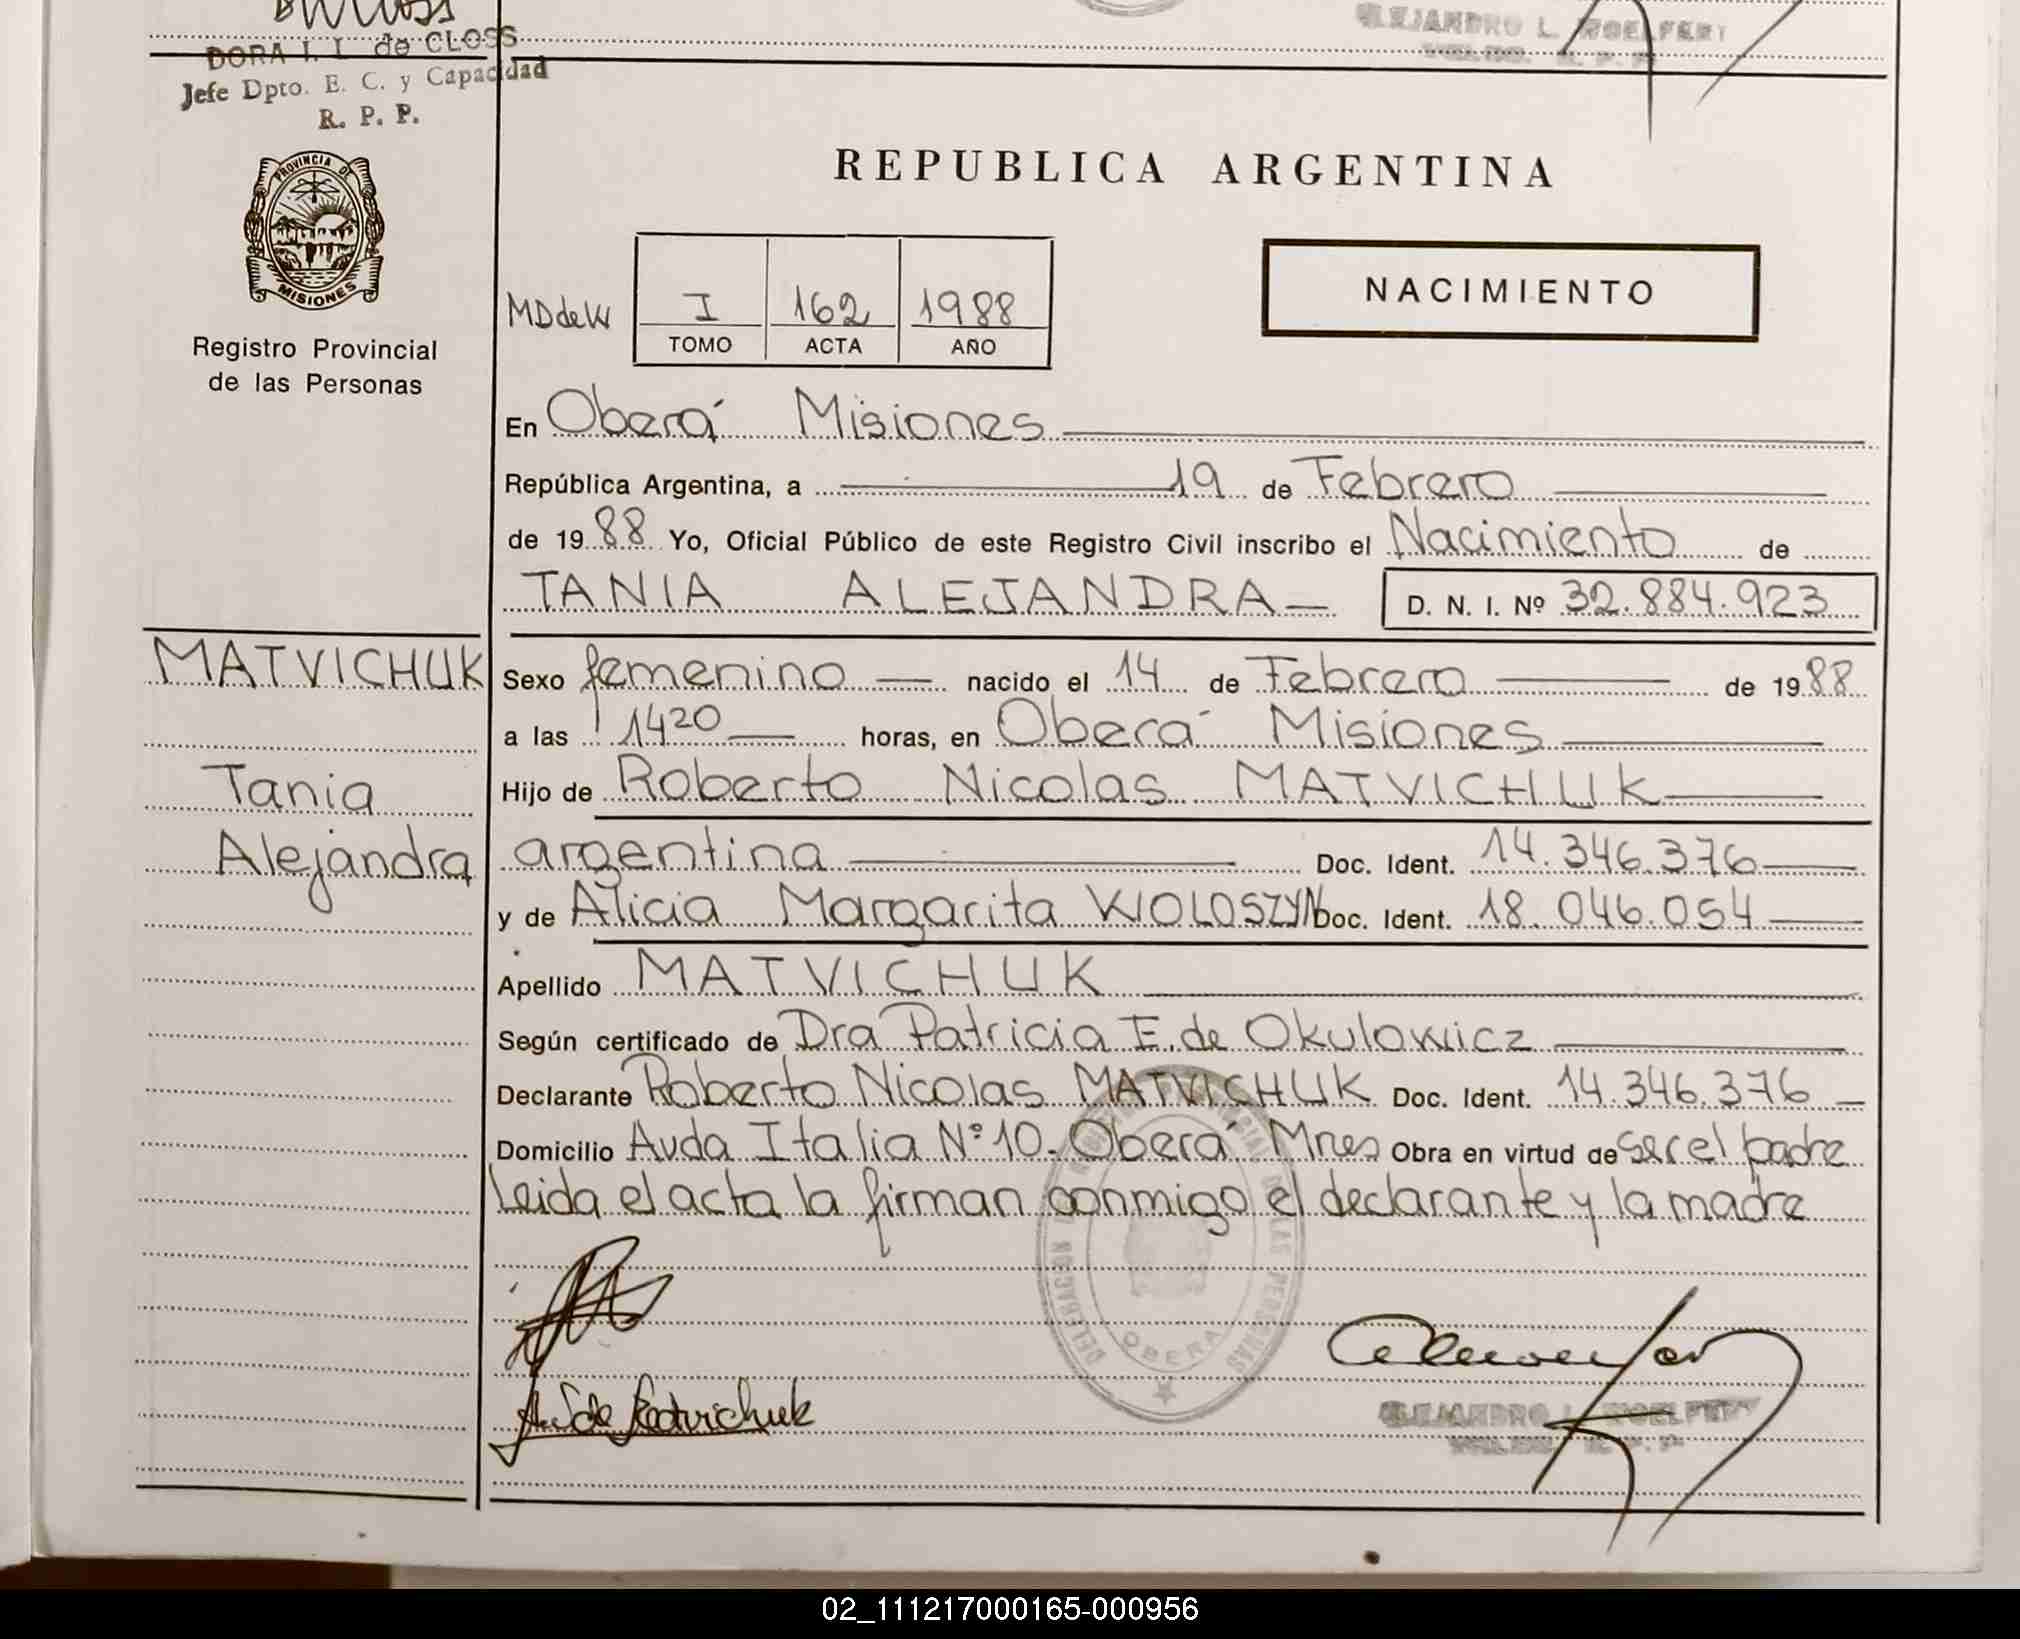 DORA I. I. de CLOSS
Jefe Dpto. E. C. y Capacidad
R. P. P.
ALEJANDRO L. WOELFERT
PROVINCIA DE
MISIONES
Registro Provincial
de las Personas
REPUBLICA ARGENTINA
MDdeW
I 162 1988
TOMO ACTA AÑO
NACIMIENTO
En Oberá Misiones
República Argentina, a 19 de Febrero
de 1988 Yo, Oficial Público de este Registro Civil inscribo el Nacimiento de
TANIA ALEJANDRA D. N. I. Nº 32.884.923
MATVICHUK
Tania
Alejandra
Sexo femenino nacido el 14 de Febrero de 1988
a las 1420 horas, en Oberá Misiones
Hijo de Roberto Nicolas MATVICHUK
argentina Doc. Ident. 14.346.376
y de Alicia Margarita WOLOSZYN Doc. Ident. 18.046.054
Apellido MATVICHUK
Según certificado de Dra Patricia E. de Okulowicz
Declarante Roberto Nicolas MATVICHUK Doc. Ident. 14.346.376
Domicilio Avda Italia Nº 10. Oberá Mnes Obra en virtud de ser el padre
Leida el acta la firman conmigo el declarante y la madre
OBERA
ALEJANDRO L. WOELFERT
02_111217000165-000956